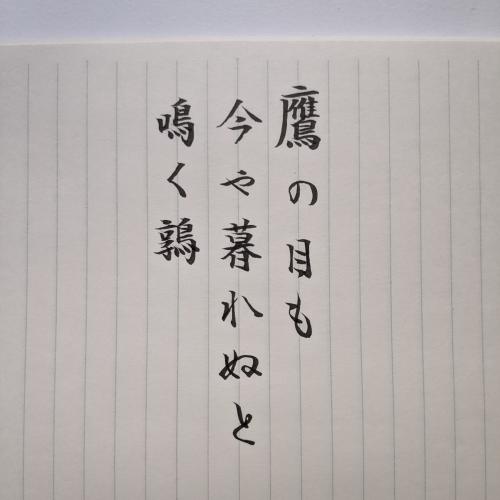 鷹の目も
今や暮れぬと
鳴く鶉